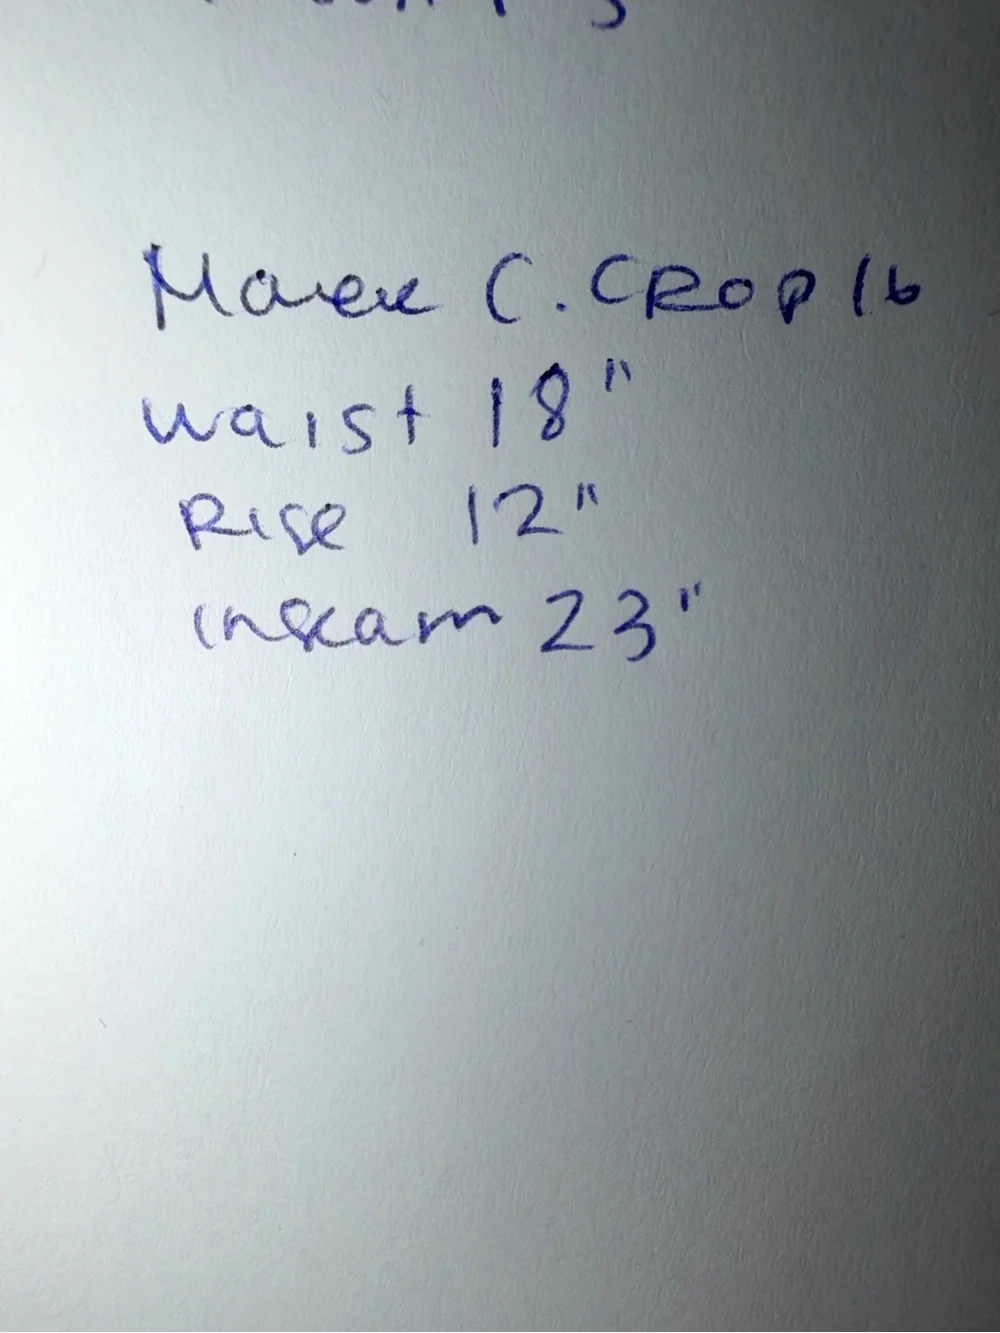 Marc C. CROP 16
waist 18"
Rise 12"
inseam 23"